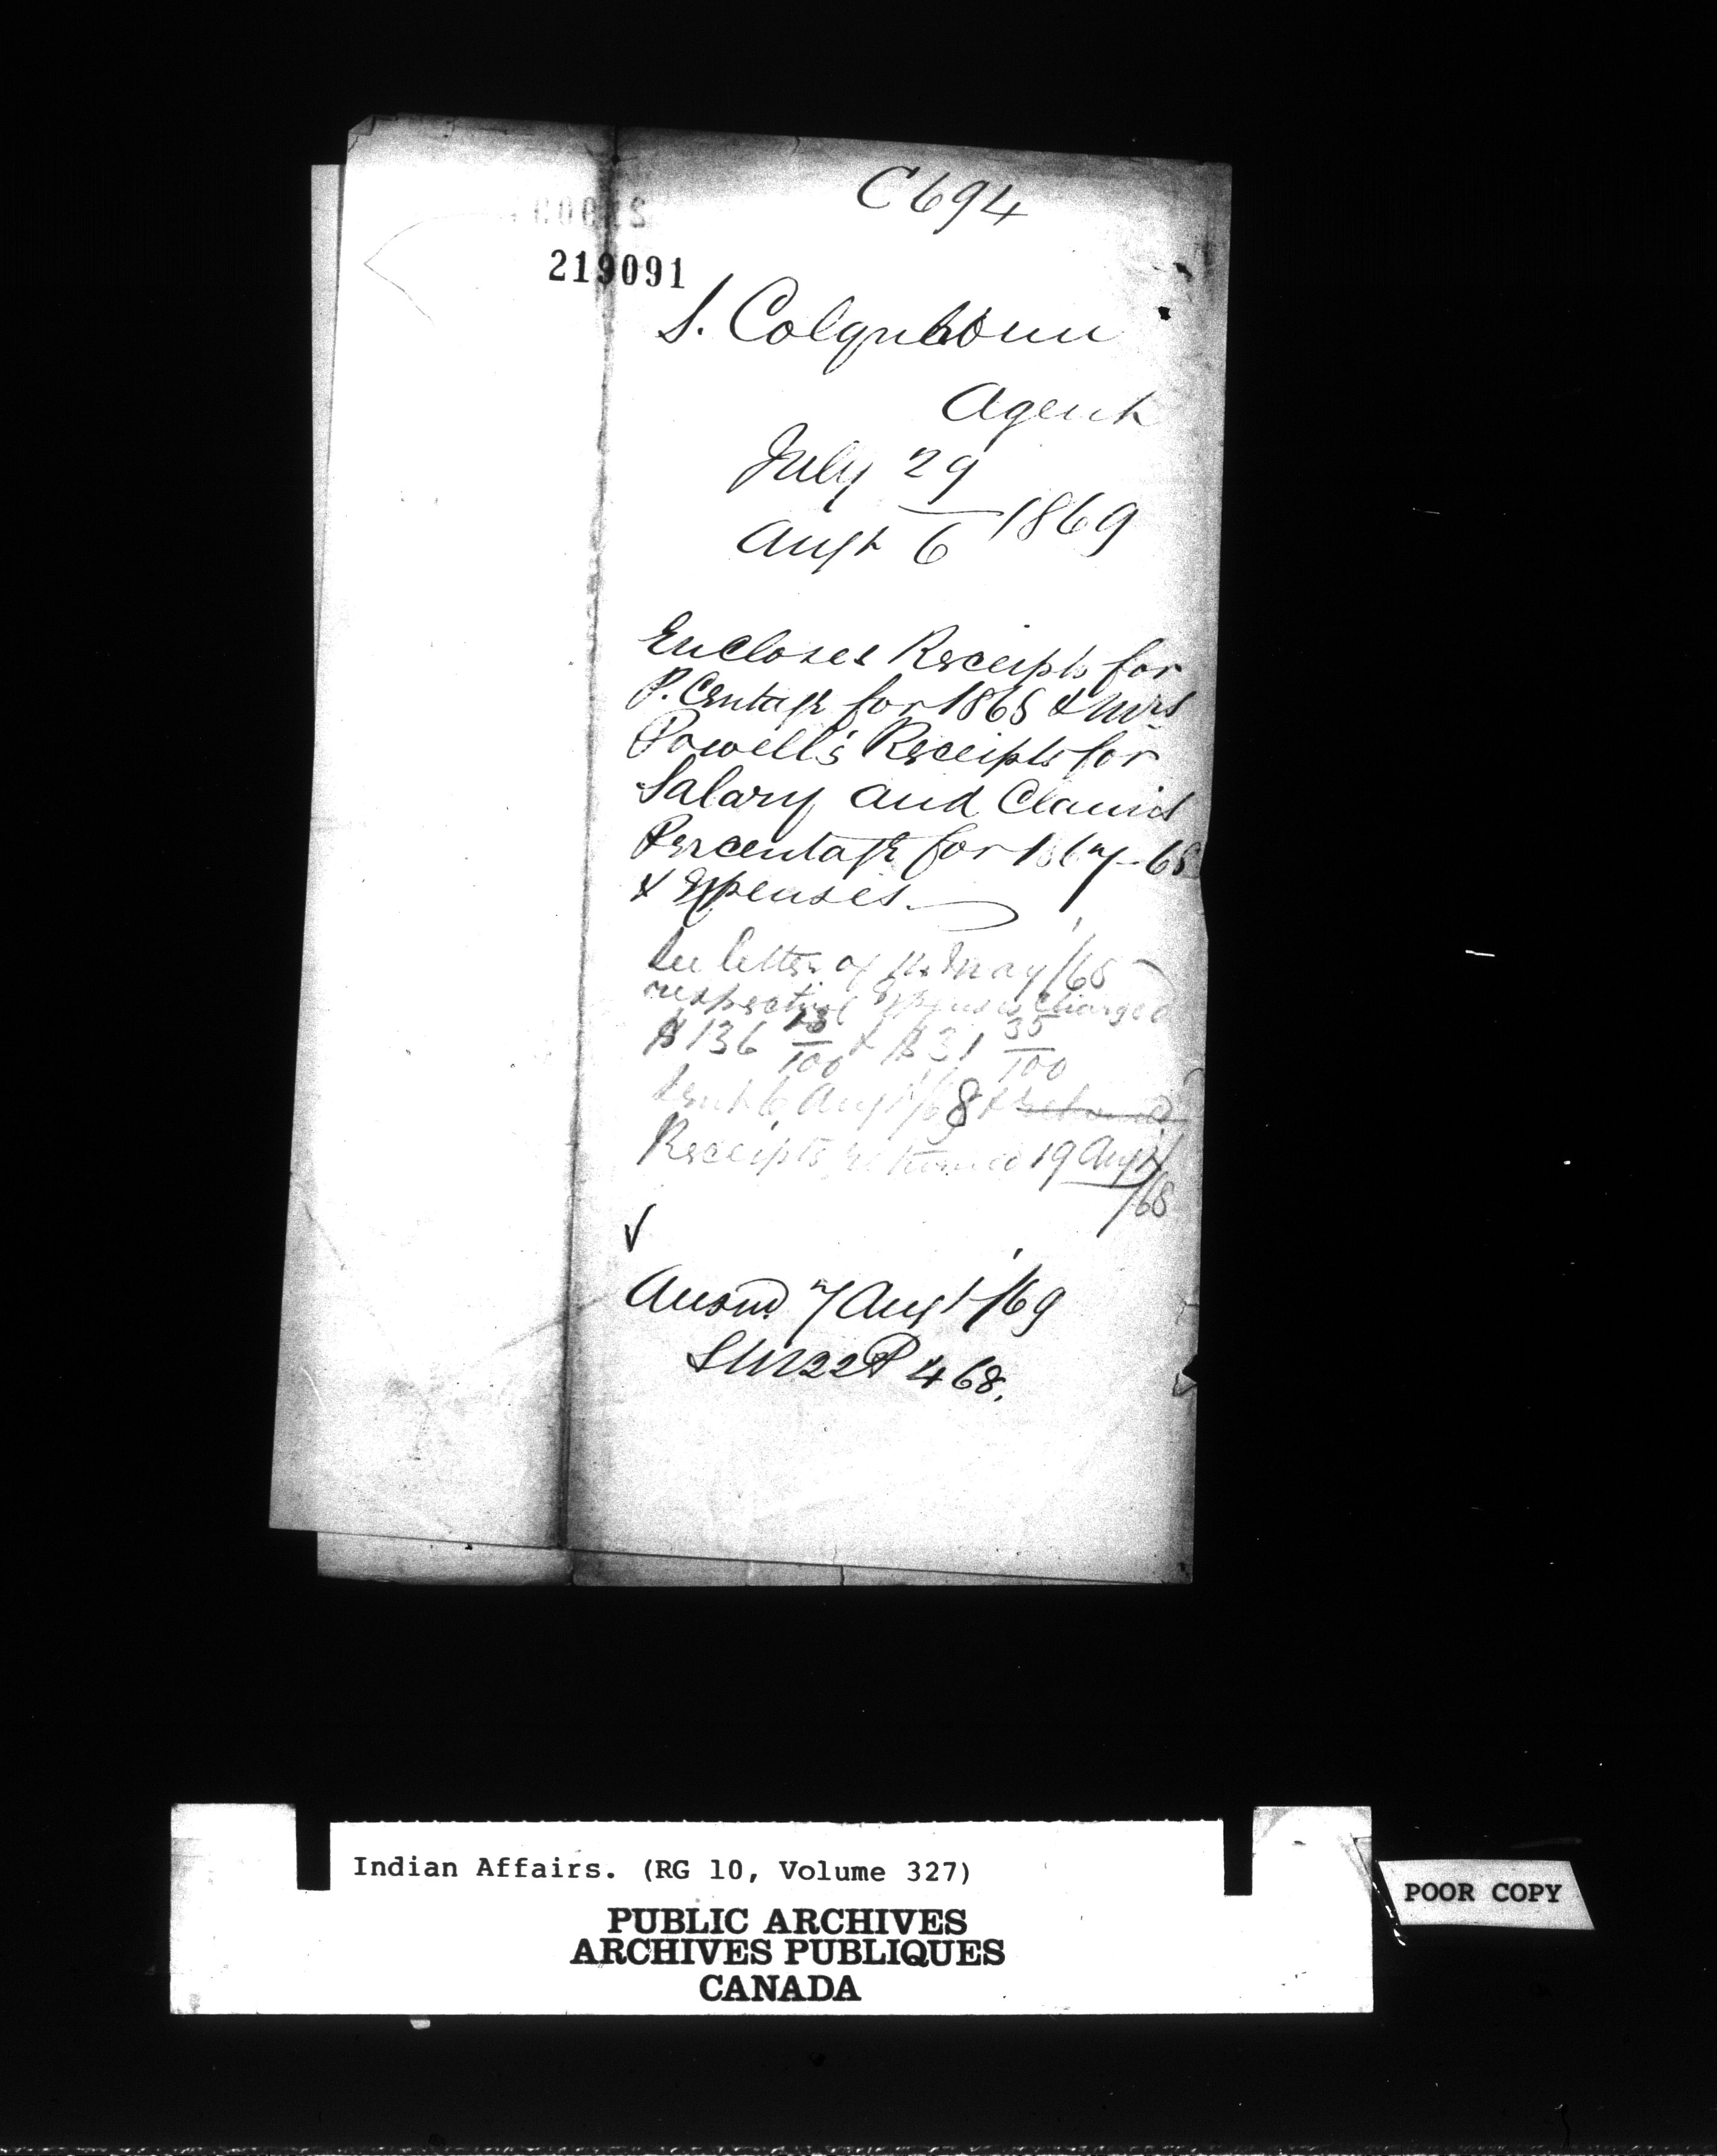 C 694
219091
S. Colquhoun
Agent
July 29
Augt 6 1869
Encloses Receipts for
P. Centage for 1868 & Mrs
Powell's Receipts for
Salary and Claims
Percentage for 1867-68
& Expenses.
See letter of 14 May /68
respecting Expenses Charged
$136 13/100 & $31 35/100
Sent 6 Augt /68 &
Receipts returned 19 Augt
/68
✓
Answd 7 Augt /69
P 468.
Indian Affairs. (RG 10, Volume 327)
PUBLIC ARCHIVES
ARCHIVES PUBLIQUES
CANADA
POOR COPY